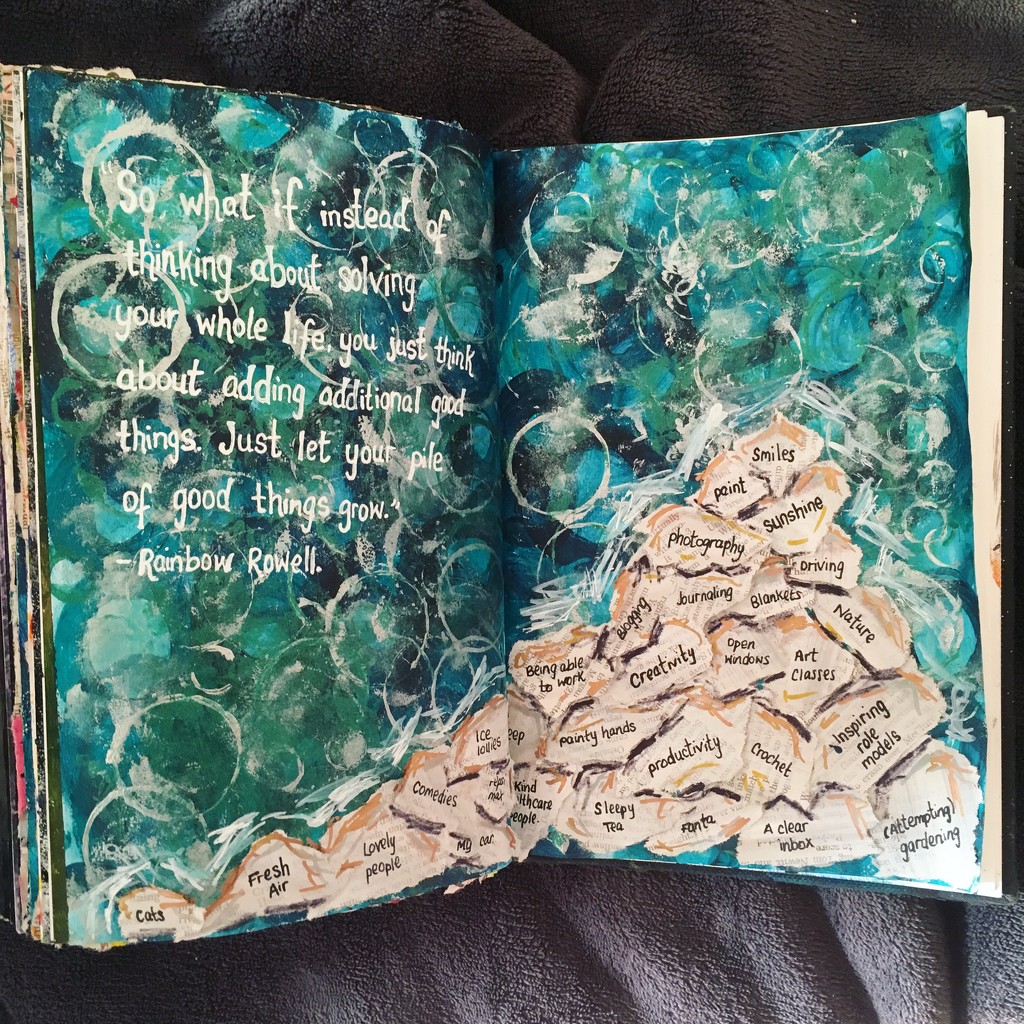 "So, what if instead of
thinking about solving
your whole life, you just think
about adding additional good
things. Just let your pile
of good things grow."
- Rainbow Rowell.
Smiles
paint
sunshine
photography
Driving
Journaling
Blankets
Blogging
Nature
Being able
to work
Creativity
Open
Windows
Art
Classes
Inspiring
role
models
Ice
lollies
painty hands
productivity
Crochet
Comedies
max
Kind
people.
Sleepy
Tea
Fanta
A clear
inbox
(Attempting)
gardening
Lovely
people
My car
Fresh
Air
Cats